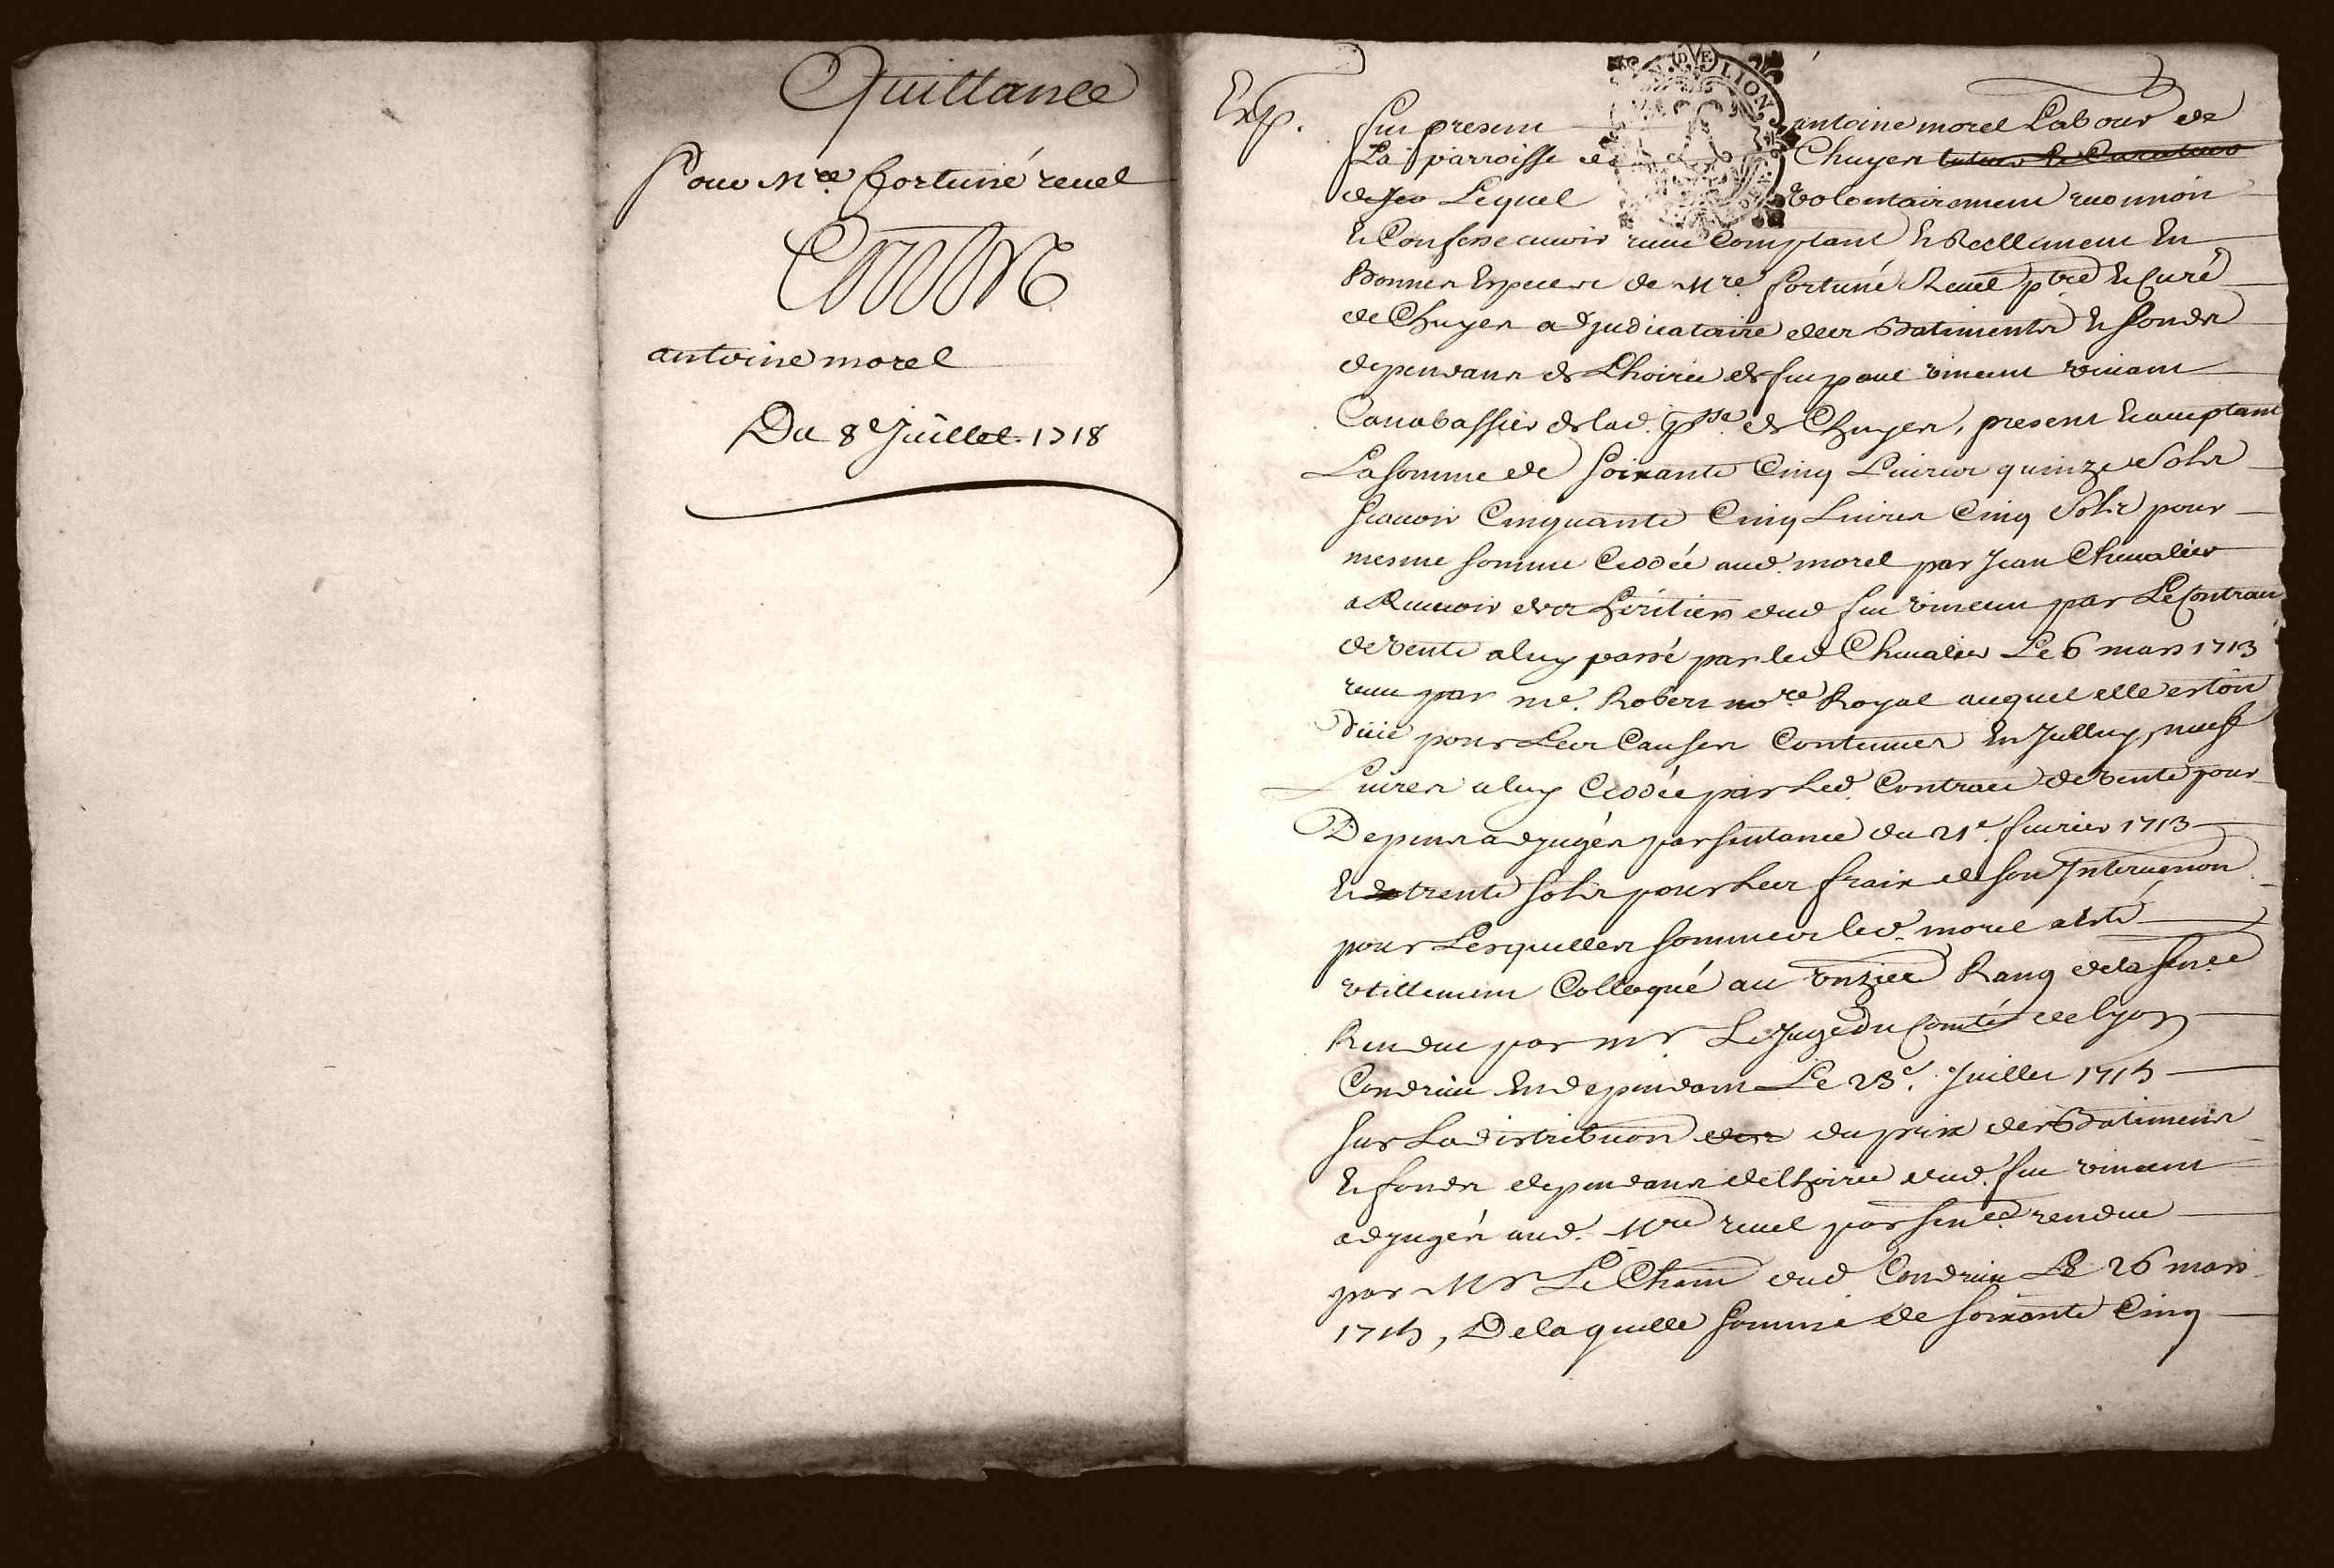 Quittance
Pour Mre fortuné revel
Contre
antoine morel
Du 8e Juillet 1718
Exp.
Fut present antoine morel Labour de
La parroisse de Chuyes
Lequel volontairement reconnoit
et Confesse avoir receu Comptant et Reellement En
Bonnes Especes de Mre fortuné Revel ptre et Curé
de Chuyes adjudicataire des Batiments et fonds
dependans de Lhoirie de feu paul vincent vivant
Canabassier de lad. psse de Chuyes, present et acceptant
La somme de soixante Cinq Livres quinze Sols
scavoir Cinquante Cinq Livres Cinq Sols pour
mesme somme Ceddée aud. morel par Jean Chevalier
a Recevoir des heritiers dud feu vincent par Le Contract
de vente a luy passé par led Chevalier Le 6 mars 1713
receu par me. Robert nore Royal auquel elle estoit
düe pour Les Causes Contenues En Jcelluy, neuf
Livres a luy Ceddée par Led. Contract de vente pour
Depens adjugés par sentance du 21e. fevrier 1713
et trente sols pour Les frais de son Intervenon
pour Lesquelles sommes led. morel a esté
utillement Colloqué au onzie Rang de la sence
Rendue par mr Le Juge du Comté de lyon
Condrieu En dependant Le 23e. Juillet 1715
sur La distribuon du prix des Batimens
et fonds dependans de Lhoirie dud. feu vincent
adjugés aud. Mre revel par sence rendue
par Mr Le Chain dud Condrieu Le 26 mars
1715, De laquelle somme de soixante Cinq